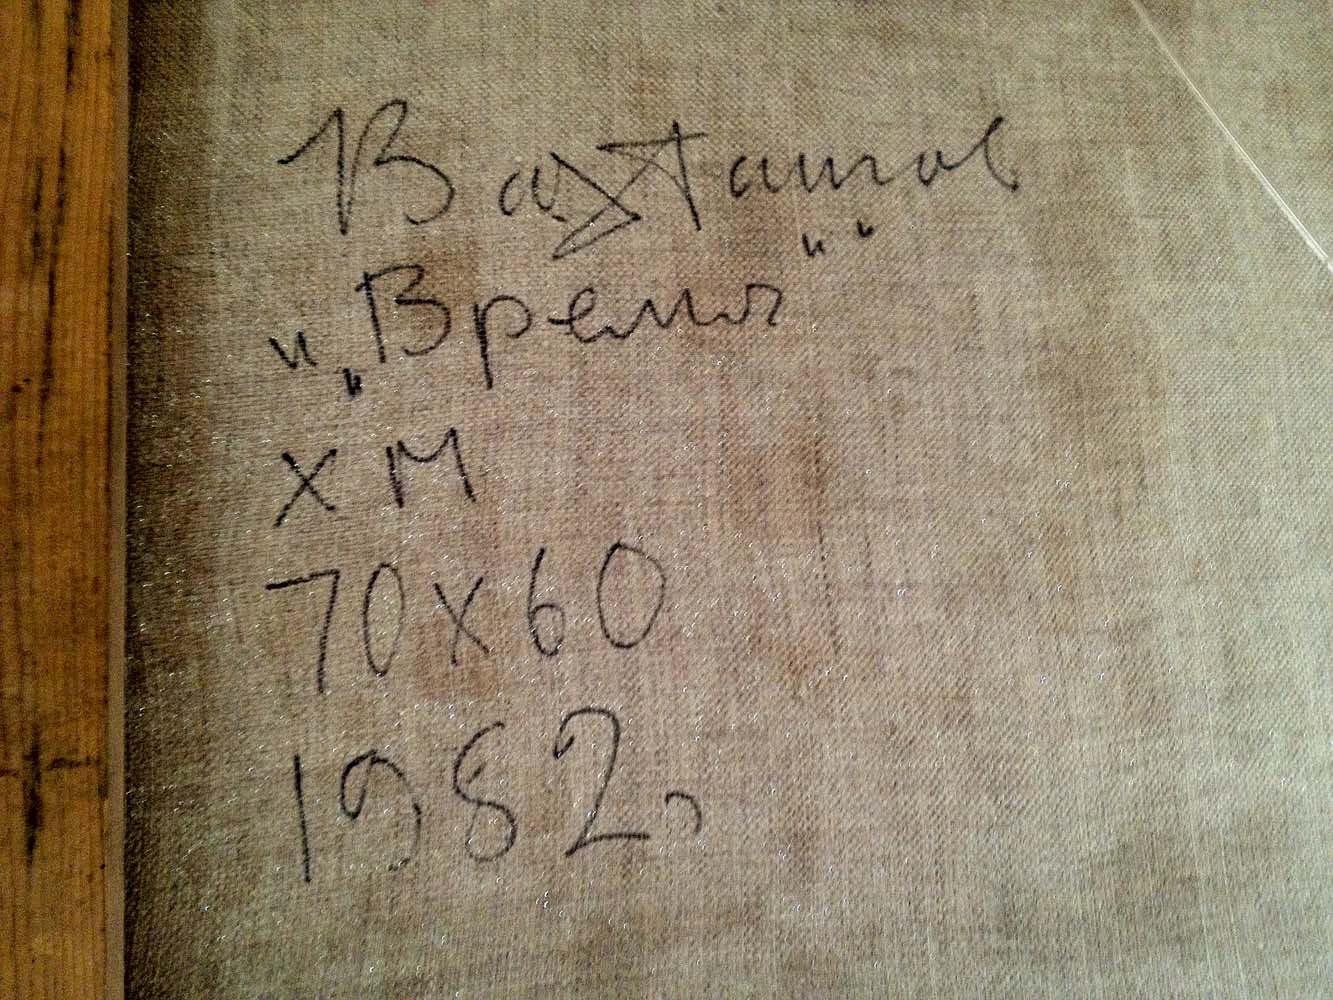 Вахтангов
„Время“
ХМ
70х60
1982.